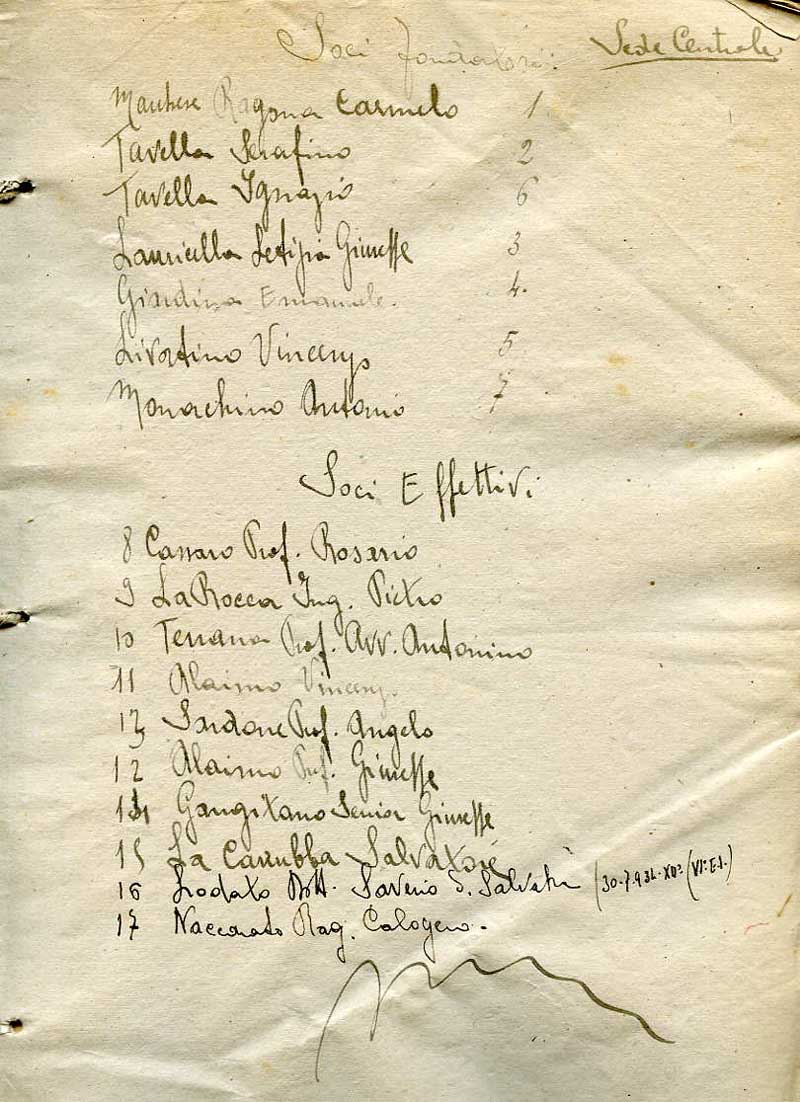 Soci fondatori: Sede Centrale
Marchese Ragona Carmelo 1
Tavella Serafino 2
Tavella Ignazio 6
Lauricella Letizia Giuseppe 3
Giardina Emanuele. 4.
Livatino Vincenzo 5
Monachino Antonio 7
Soci Effettivi
8 Cassaro Prof. Rosario
9 La Rocca Ing. Pietro
10 Terrana Prof. Avv. Antonino
11 Alaimo Vincenzo
13 Sardone Prof. Angelo
12 Alaimo Prof. Giuseppe
14 Gangitano Senior Giuseppe
15 La Carrubba Salvatore
16 Lodato Dott. Saverio Salvatore (30.7.934-XIIº (VIº E.I.)
17 Naccarato Rag. Calogero.